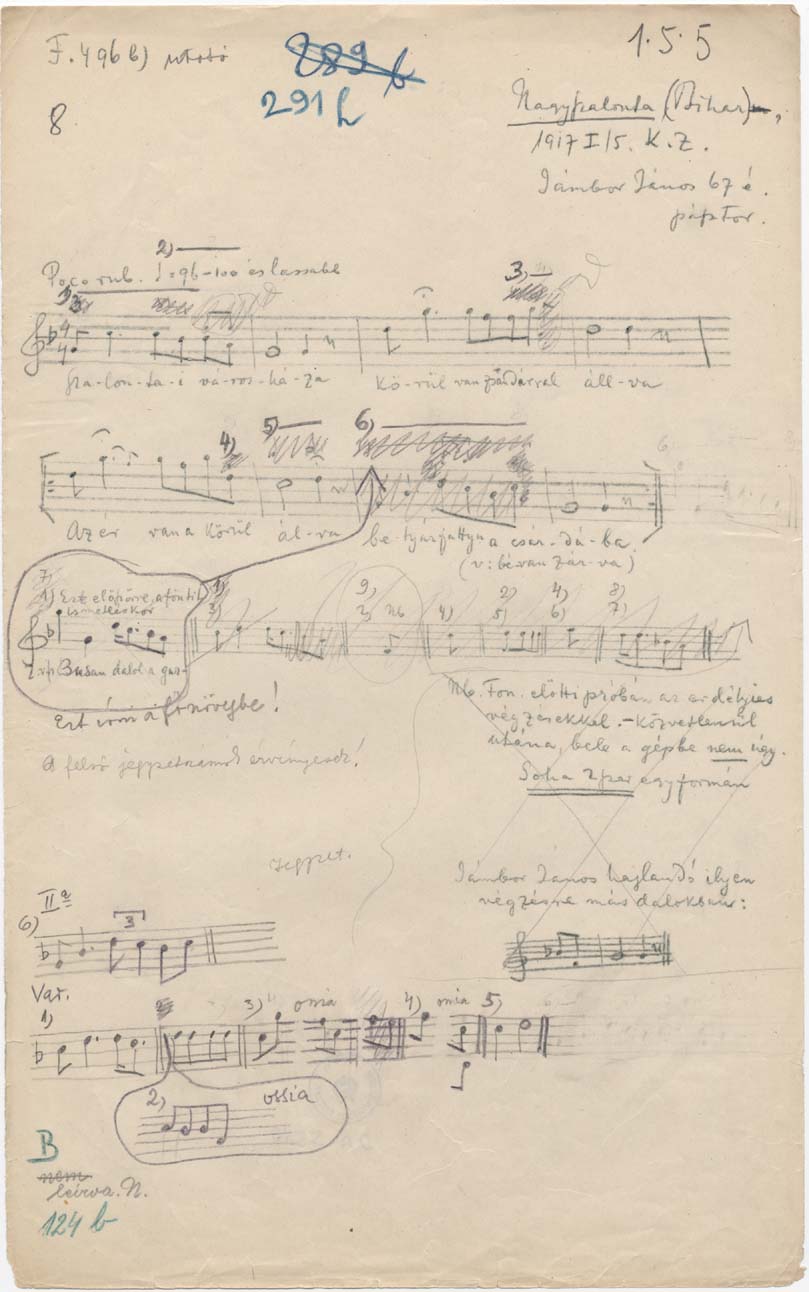 F. 496 b) utolsó
1.5.5
289 b
291 b
8.
Nagyszalonta (Bihar),
1917 I/5. K.Z.
Jámbor János 67 é.
pásztor.
2)
Poco rub. ♩=96-100 és lassabb
3)
4
4
Sza-lon-ta-i vá-ros-há-za Kö-rül van zsandárral áll-va
4) 5) 6)
Azér van a körül ál-va be-tyár
a csár-dá-ba
(v: bé van zár-va)
7)
1) Ezt először, a föntit
ismétléskor
1)
3)
9)
2) Nb
4)
2)
5)
4)
6)
8)
7)
Busan dalol a
Ezt írni a főnövegbe!
Nb. Fon. előtti próbán az erdélyies
végzésekkel. - Közvetlenül
utána, bele a gépbe nem úgy.
Soha 2szer egyformán
A felső jegyzetszámok érvényesek!
Jegyzet.
Jámbor János hajlandó ilyen
végzésre más dalokban:
IIa
6)
3
Var.
1) 3) ossia 4) ossia 5)
2) ossia
B
nem
leírva. N.
124 b